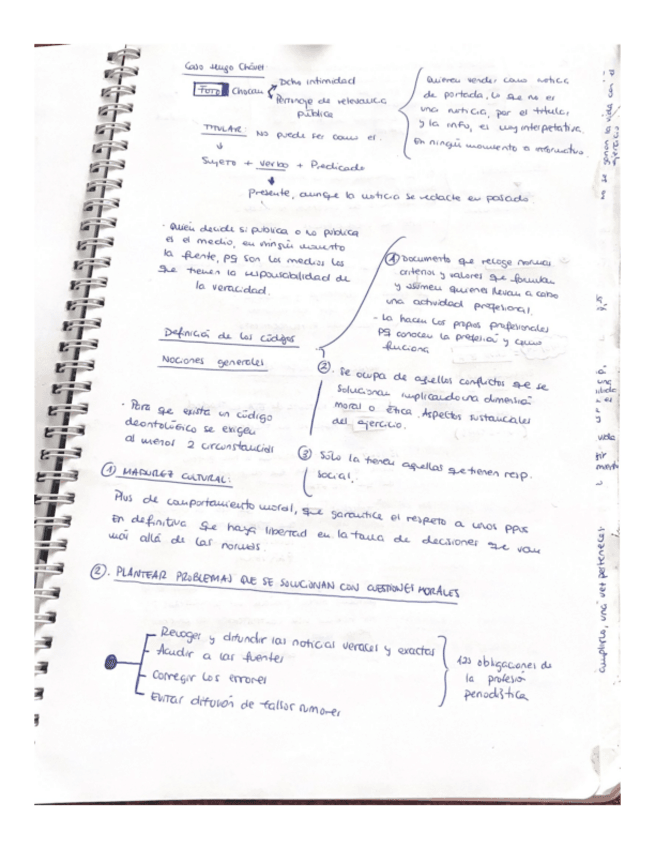 Caso Hugo Chávez
FOTO Chocan
Dcho intimidad
Personaje de relevancia
pública
Quieren vender como noticia
de portada, lo que no es
una noticia, por el titular
y la info, es muy interpretativa.
En ningún momento o informativo.
TITULAR: No puede ser como el.
Sujeto + verbo + Predicado
Presente, aunque la noticia se redacte en pasado.
· Quien decide si publica o no publica
es el medio, en ningún momento
la fuente, pq son los medios los
que tienen la responsabilidad de
la veracidad.
Definición de los códigos
Nociones generales
① Documento que recoge normas
criterios y valores que formulan
y asumen quienes llevan a cabo
una actividad profesional.
- Lo hacen los propios profesionales
pq conocen la profesión y como
funciona
②. Se ocupa de aquellos conflictos que se
solucionan implicando una dimensión
moral o ética. Aspectos sustanciales
del ejercicio.
③ Sólo la tienen aquellas que tienen resp.
social.
· Para que exista un código
deontológico se exigen
al menos 2 circunstancias
① MADUREZ CULTURAL:
Plus de comportamiento moral, que garantice el respeto a unos ppios
En definitiva que haya libertad en la toma de decisiones que van
más allá de las normas.
②. PLANTEAR PROBLEMAS QUE SE SOLUCIONAN CON CUESTIONES MORALES
Recoger y difundir las noticias veraces y exactas
Acudir a las fuentes
Corregir los errores
Evitar difusión de falsos rumores
obligaciones de
la profesión
periodística
no se ganan la vida con el
ejercicio
cumplirlo, una vez perteneces